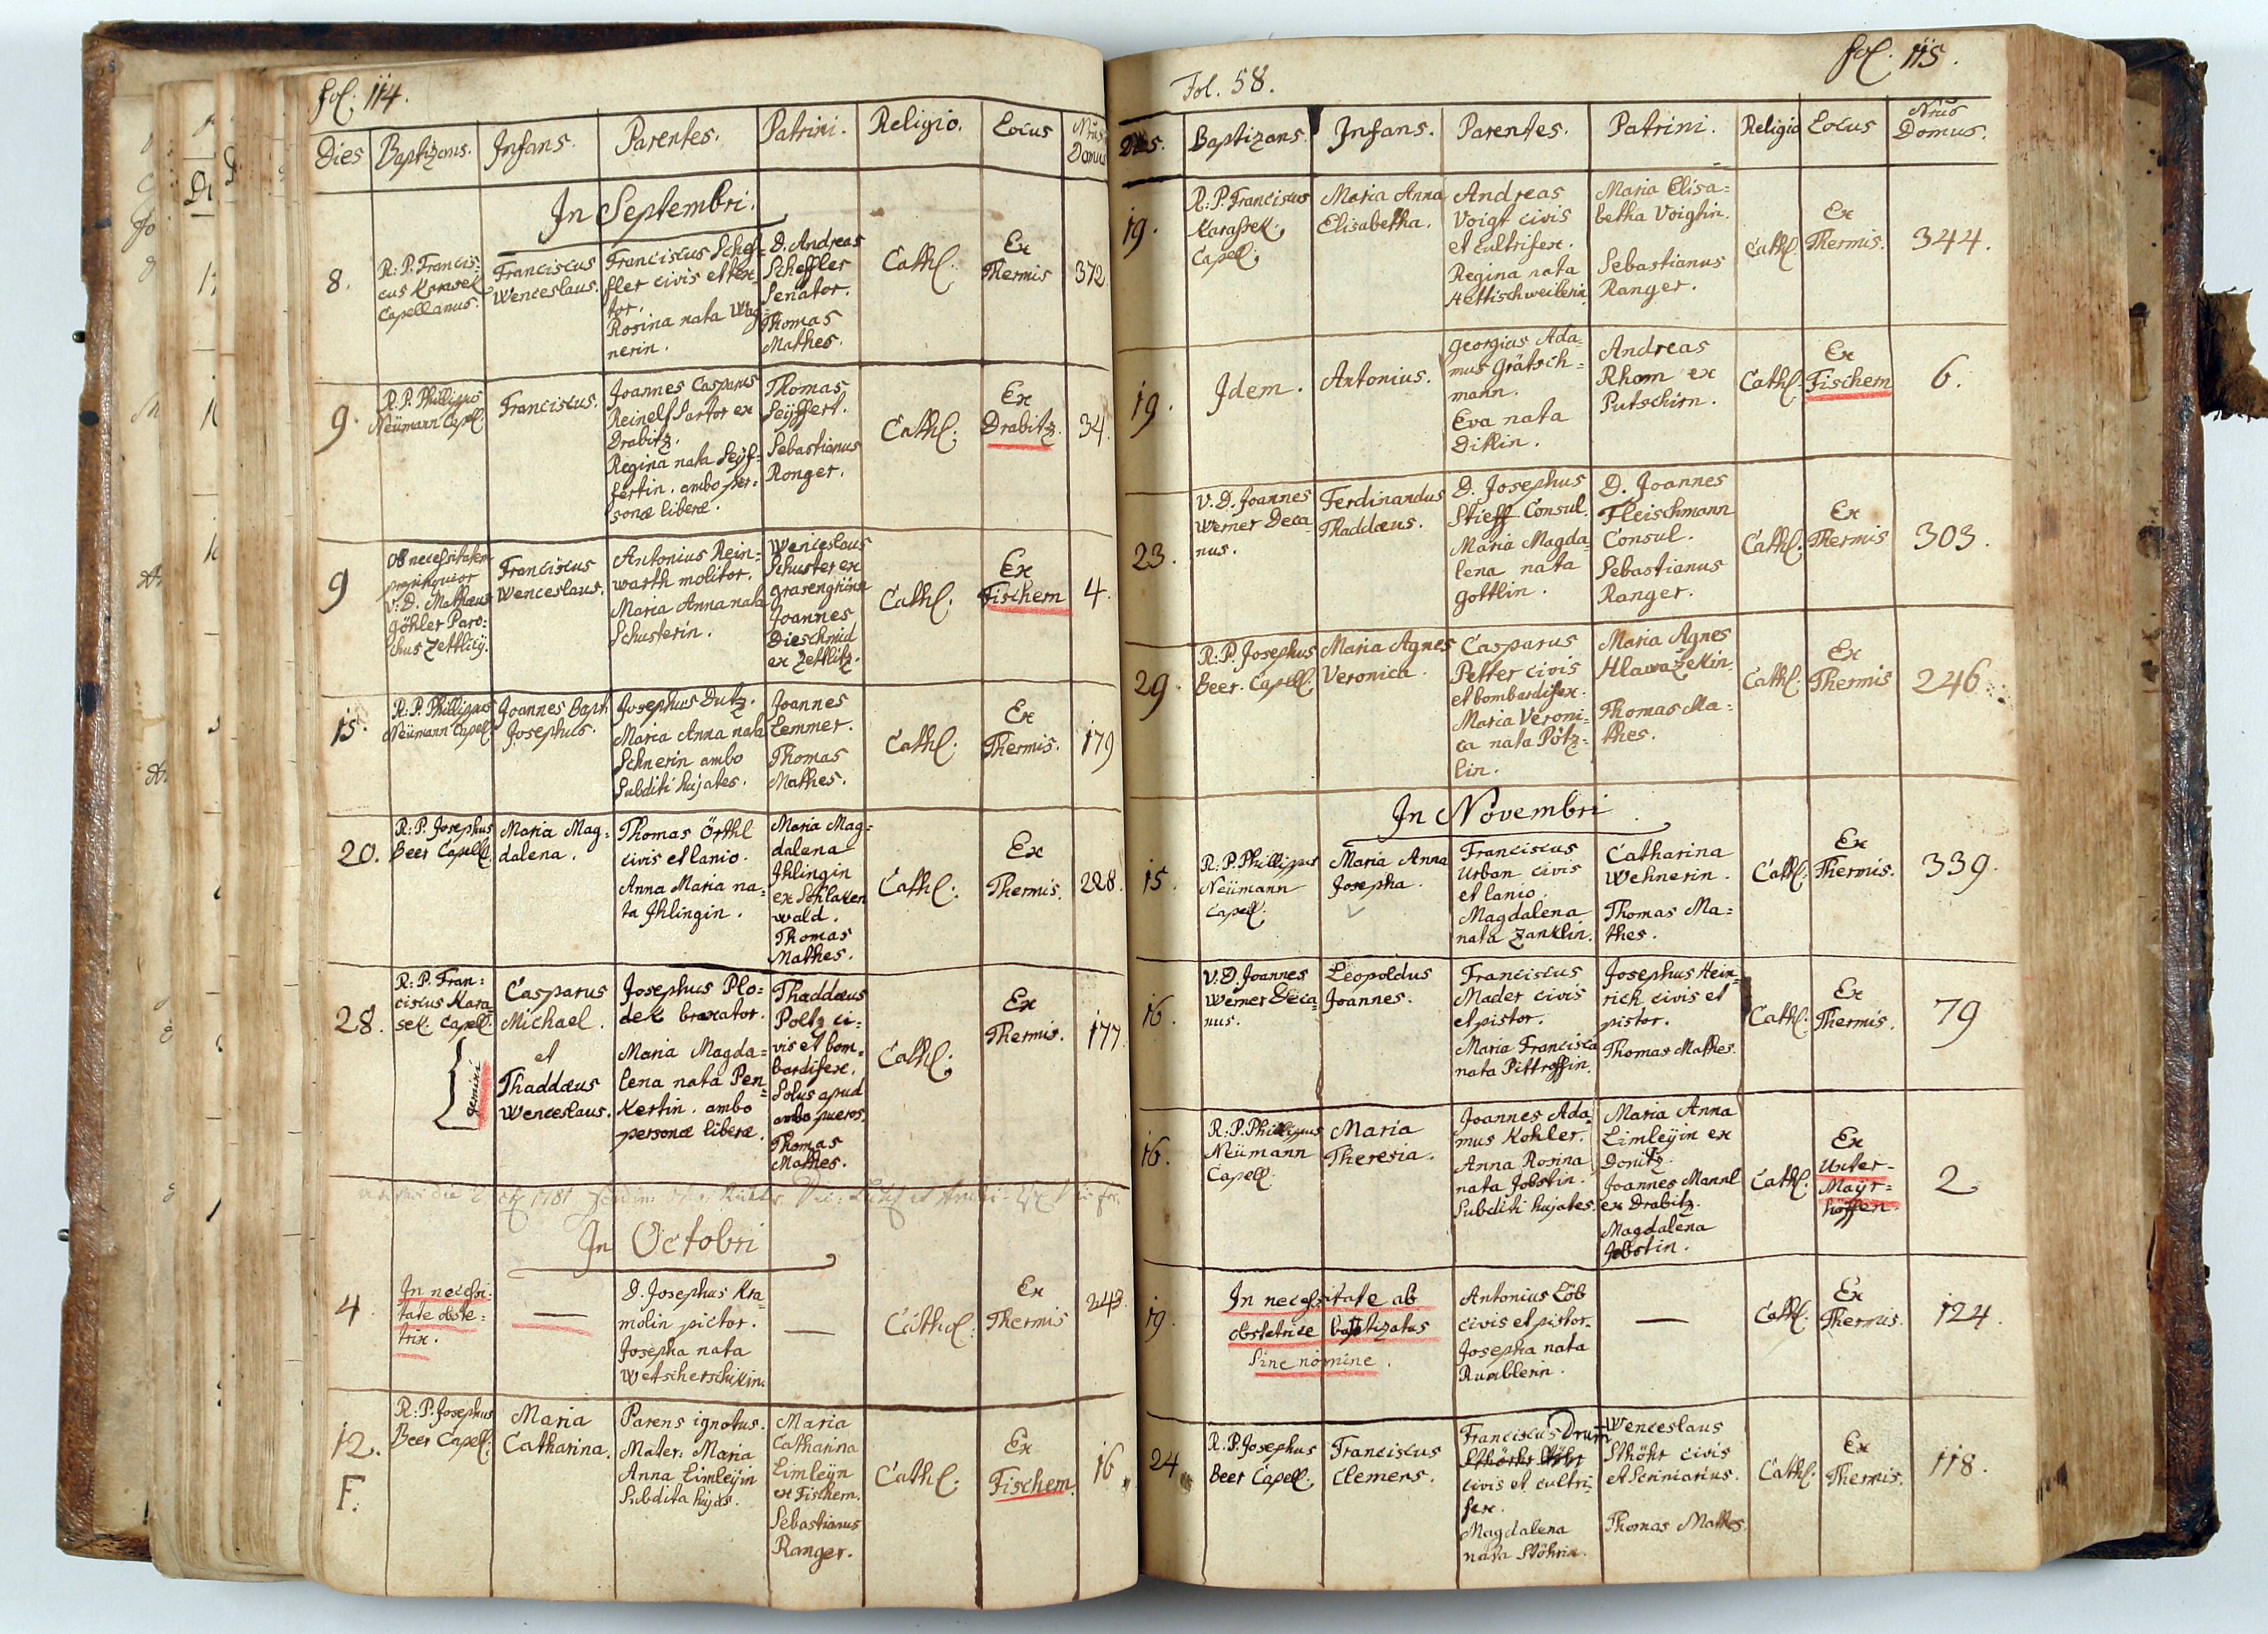 fol. 114.
Dies Baptizans. Infans. Parentes. Patrini. Religio. Locus Nrus Domus
In Septembri.
8.
R: P. Francis=
cus Karasek
Capellanus.
Franciscus
Wenceslaus.
Franciscus Schef=
fler civis et
tor.
Rosina nata Wag=
nerin.
D. Andreas
Scheffler
Senator.
Thomas
Mathes.
Cathl:
Ex
Thermis
372.
9.
R. P. Phillippus
Neümann Capell.
Franciscus.
Joannes Casparus
Reinelf Sartor ex
Drabitz.
Regina nata Seÿf=
fertin. ambo per=
sonæ liberæ.
Thomas
Seÿffert.
Sebastianus
Ronger.
Cathl:
Ex
Drabitz.
34.
9
Ob necessitatem
propinquior
V: D. Mathæus
Göhler Paro=
chus Zettlicÿ.
Franciscus
Wenceslaus.
Antonius Rein=
warth molitor.
Maria Anna nata
Schusterin.
Wenceslaus
Schuster ex
grasengrün
Joannes
Dieschmid
ex Zettlitz.
Cathl:
Ex
Fischern
4.
15.
R: P. Phillippus
Neümann Capell
Joannes Bapt:
Josephus.
Josephus Dutz.
Maria Anna nata
Schnerin ambo
Subditi hujates.
Joannes
Lemmer.
Thomas
Mathes.
Cathl:
Ex
Thermis.
179
20.
R: P. Josephus
Beer Capell.
Maria Mag=
dalena.
Thomas Örthl
civis et lanio.
Anna Maria na=
ta Ihlingin.
Maria Mag=
dalena
Ihlingin
ex Schlaken
wald.
Thomas
Mathes.
Cathl:
Ex
Thermis.
228.
28.
R: P. Fran=
ciscus Kara=
sek. Capell:
gemini
Casparus
Michael.
et
Thaddæus
Wenceslaus.
Josephus Plo=
dek braxator.
Maria Magda=
lena nata Pen=
kertin. ambo
personæ liberæ.
Thaddæus
Poltz ci=
vis et bom=
bardifex.
Solus apud
ambo pueros.
Thomas
Mathes.
Cathl:
Ex
Thermis.
177.
In Octobri
4.
In necessi=
tate obste=
trix.
—
D. Josephus Kra=
molin pictor.
Josepha nata
Wetscherschikin.
—
Cathol:
Ex
Thermis
243.
12.
F.
R: P. Josephus
Beer Capell:
Maria
Catharina.
Parens ignotus.
Mater: Maria
Anna Limleÿin
Subdita hujas.
Maria
Catharina
Limleÿn
ex Fischern.
Sebastianus
Ranger.
Cathl:
Ex
Fischern.
16
Fol. 58.
fol. 115.
Dies. Baptizans. Infans. Parentes. Patrini. Religio Locus Nrus Domus.
19.
R: P. Franciscus
Karassek.
Capell:
Maria Anna
Elisabetha.
Andreas
Voigt civis
et Cultrifex.
Regina nata
Hettischweilerin
Maria Elisa=
betha Voigtin.
Sebastianus
Ranger.
Cathl:
Ex
Thermis.
344.
19.
Idem.
Antonius.
Georgius Ada=
mus Grätsch=
mann.
Eva nata
Ditlin.
Andreas
Rhom ex
Putschirn.
Cathl:
Ex
Fischern
6.
23.
V. D. Joannes
Werner Deca=
nus.
Ferdinandus
Thaddæus.
D. Josephus
Stieff Consul.
Maria Magda=
lena nata
Gottlin.
D. Joannes
Fleischmann
Consul.
Sebastianus
Ranger.
Cathl:
Ex
Thermis
303.
29.
R: P. Josephus
Beer. Capell.
Maria Agnes
Veronica.
Casparus
Petter civis
et bombardifex.
Maria Veroni=
ca nata Pötz=
lin.
Maria Agnes
Hlawazekin.
Thomas Ma=
thes.
Cathl:
Ex
Thermis
246.
In Novembri.
15.
R: P. Phillippus
Neümann
Capell.
Maria Anna
Josepha.
Franciscus
Urban civis
et lanio.
Magdalena
nata Zanklin.
Catharina
Wehnerin.
Thomas Ma=
thes.
Cathl:
Ex
Thermis.
339.
16.
V: D. Joannes
Werner Deca=
nus.
Leopoldus
Joannes.
Franciscus
Mader civis
et pistor.
Maria Francisca
nata Pittroffin.
Josephus Hein=
rich civis et
pistor.
Thomas Mathes.
Cathl:
Ex
Thermis.
79
16.
R: P. Phillippus
Neümann
Capell.
Maria
Theresia.
Joannes Ada=
mus Kohler.
Anna Rosina
nata Jobstin.
Subditi hujates.
Maria Anna
Limleÿin ex
Donitz.
Joannes Mannl
ex Drabitz.
Magdalena
Jobstin.
Cathl:
Ex
Unter=
Maÿr=
höffen.
2
19.
In necessitate ab
obstetrice baptizatus
Sine nomine.
Antonius Löb
civis et pistor.
Josepha nata
Rumblerin.
—
Cathl:
Ex
Thermis.
124.
24.
R. P. Josephus
Beer Capell.
Franciscus
Clemens.
Franciscus Drum
civis et cultri=
fex.
Magdalena
nata Stöhrin.
Wenceslaus
Sthöhr civis
et Scriniarius.
Thomas Mathes.
Cathl:
Ex
Thermis.
118.